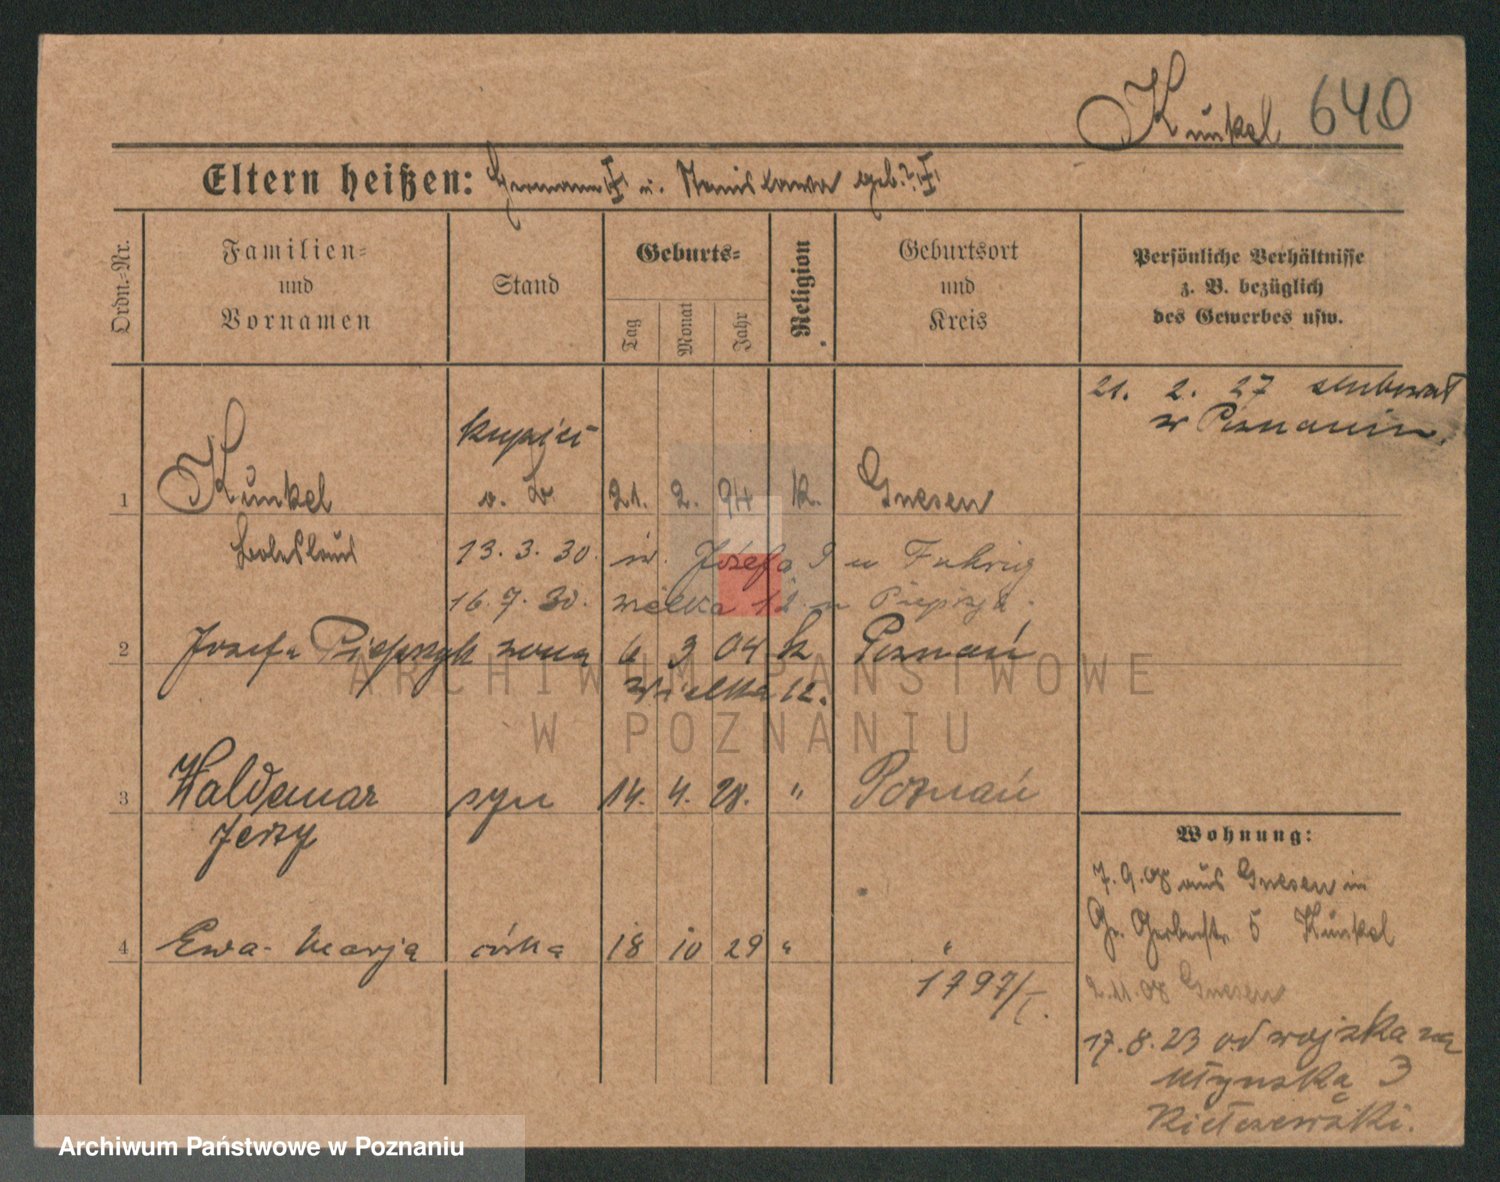 Künkel 640
Eltern heißen: Hermann u. Stanislawa geb. ?
Ordn.-Nr.
Familien-
und
Vornamen
Stand
Geburts-
Tag
Monat
Jahr
Religion
Geburtsort
und
Kreis
Persönliche Verhältnisse
z. B. bezüglich
des Gewerbes usw.
21. 2. 27 ślubował
w Poznaniu.
kupiec
1 Künkel 21. 2. 94 k. Gnesen
Boleslaus 13. 3. 30. Józefa 9 u Fahrig
16. 7. 30. wielka 12 u Pieprzyk.
2 Jozefa Pieprzyk żona 6 3 04 k Poznań
Wielka 12.
ARCHIWUM PAŃSTWOWE
W POZNANIU
3 Waldemar syn 14. 4. 28. " Poznań
Jerzy
Wohnung:
7. 9. 08 aus Gnesen in
Gr. Gerberstr. 5 Künkel
4 Ewa-Marja córka 18 10 29 " "
1797/I.
2. 11. 08 Gnesen
17. 8. 23 od wojska na
Młyńska 3
Kiełczewski.
Archiwum Państwowe w Poznaniu